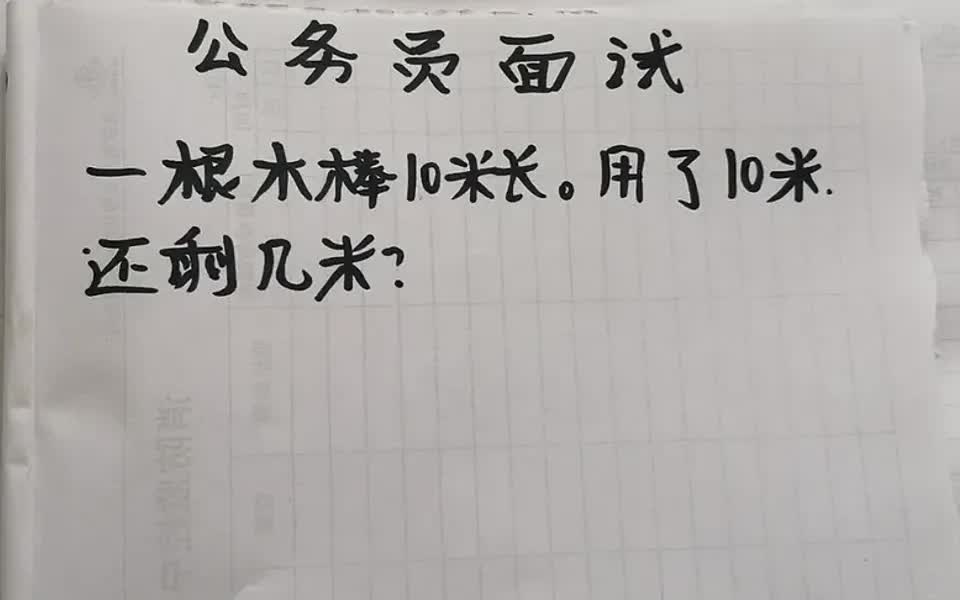 公务员面试
一根木棒10米长。用了10米.
还剩几米?